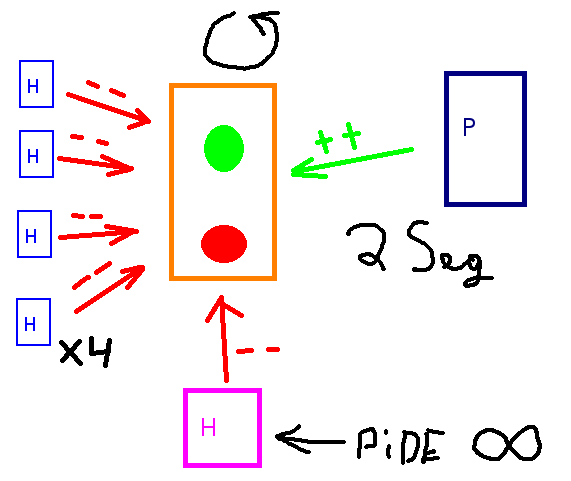 H
H
H
H
x4
-- 
--
--
--
++
P
2 Seg
--
H
PiDE ∞